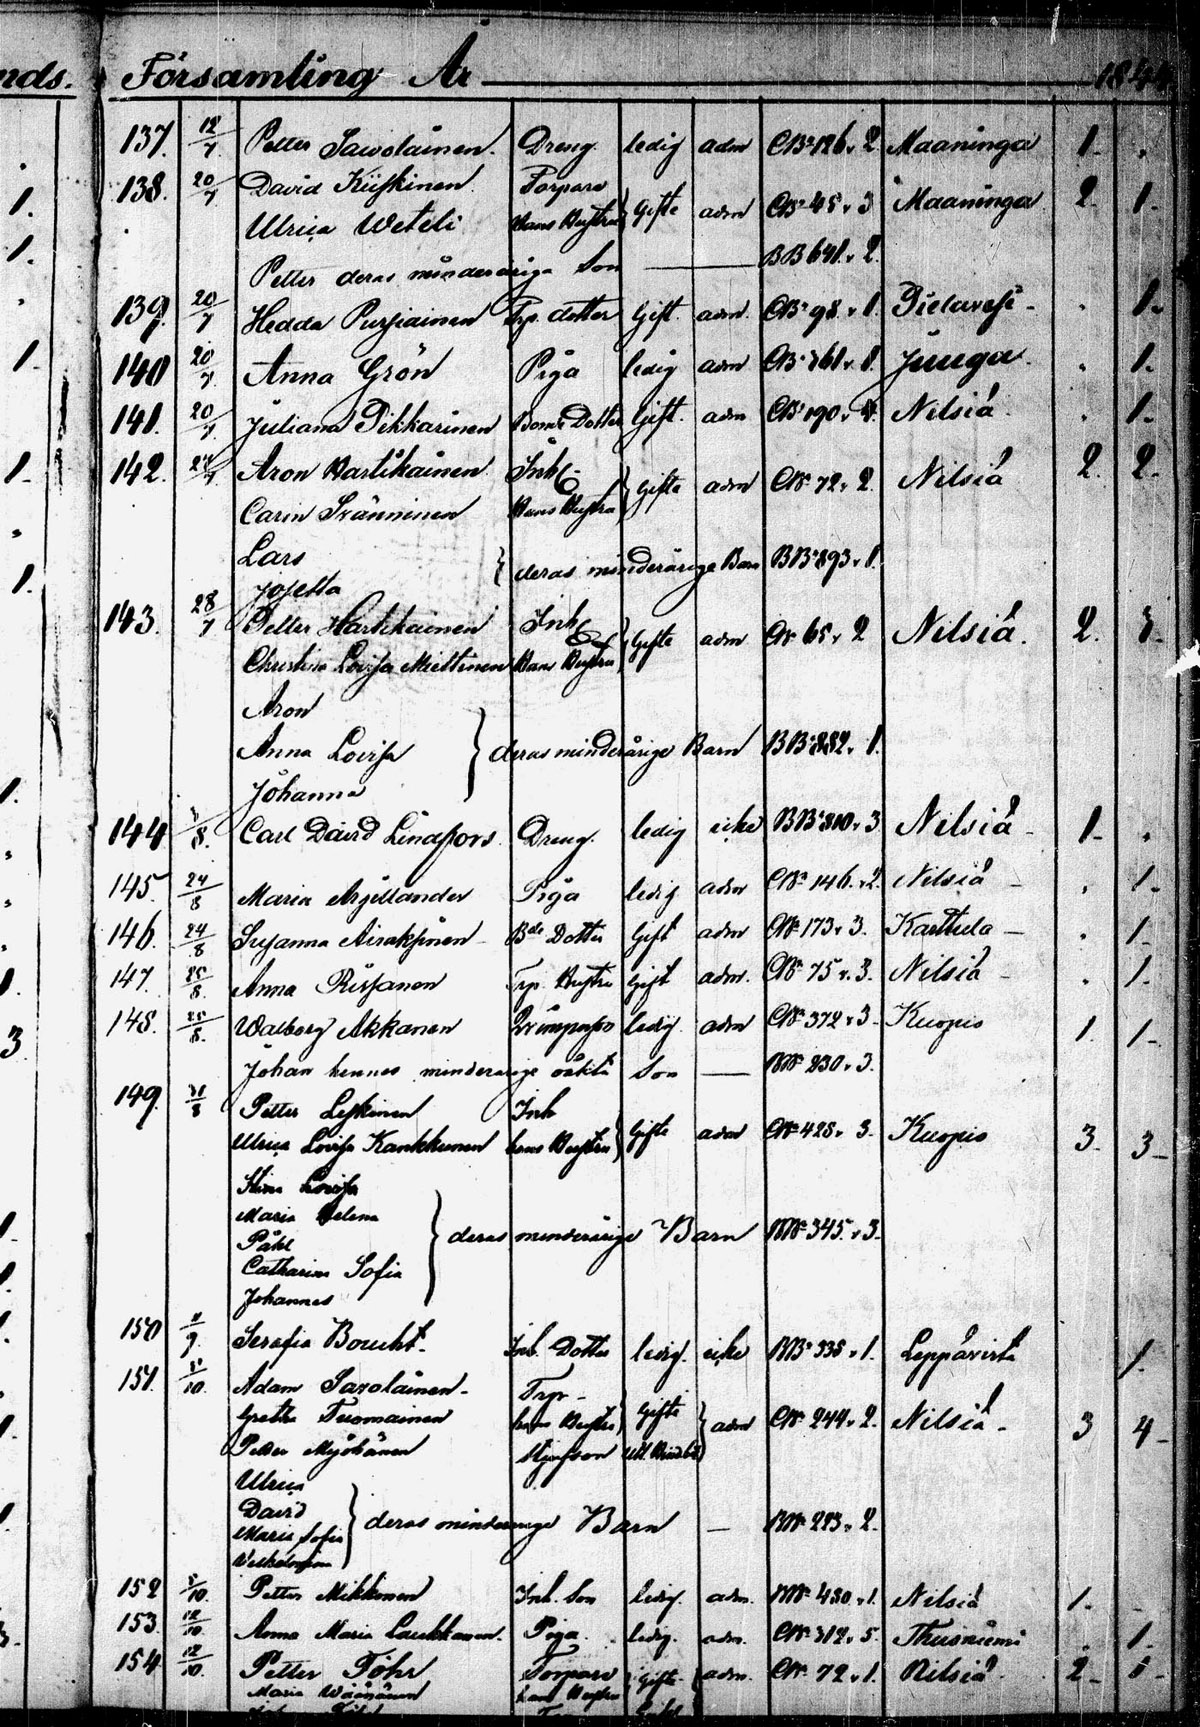 nds. Församling År 1844
137. 12/7 Petter Sawolainen. Dreng. ledig adm CB. 126. v. 2. Maaninga 1. .
138. 20/7 David Kiiskinen Torpare
Ulrica Weteli hans Hustru } Gifte adm CB. 45. v. 3 Maaninga 2. 1.
Petter deras minderåriga Son — BB 641. v. 2.
139. 20/7 Hedda Pursiainen Trp. dotter Gift. adm. CB. 98. v. 1. Pielavesi . 1.
140 20/7 Anna Grön Piga ledig adm CB. 361. v. 1. Juuga . 1.
141. 20/7 Juliana Pikkarinen Bonde Dotter Gift. adm CB. 190. v. 4. Nilsiä . 1.
142. 27/7 Aron Hartikainen Inh.
Carin Tränninen hans Hustru } Gifte adm CB. 72. v. 2. Nilsiä 2. 2.
Lars
Josetta } deras minderårige Barn BB. 893. v. 1.
143. 28/7 Petter Hartikainen Inh.
Christina Lovisa Miettinen hans Hustru } Gifte adm CB. 65. v. 2 Nilsiä. 2. 3.
Aron
Anna Lovisa } deras minderårige Barn BB. 882. v. 1.
Johanna
144 /8. Carl David Lindfors Dreng. ledig icke BB. 810. v. 3 Nilsiä 1. .
145. 24/8 Maria Argillander Piga ledig adm CB. 146. v. 2. Nilsiä . 1.
146. 24/8 Susanna Airaksinen Bde Dotter Gift adm CB. 173. v. 3. Karttula . 1.
147. 25/8. Anna Rissanen Trp. Hustru Gift adm. CB. 75. v. 3. Nilsiä . 1.
148. 25/8. Walborg Akkanen ledig. adm CB. 372. v. 3. Kuopio 1. 1.
Johan hennes minderårige oäkta Son — BB. 230. v. 3.
149. 31/8 Petter Leskinen Inh
Ulrica Lovisa Kankkunen hans Hustru } Gifte adm CB. 428. v. 3. Kuopio 3. 3
Stina Lovisa
Maria Helena
Påhl } deras minderårige Barn BB. 345. v. 3.
Catharina Sofia
Johannes
150 /9. Serafia Boucht Inh. Dotter ledig. icke BB. 335. v. 1. Leppävirta 1.
151. /10. Adam Savolainen Trpr
Gretha Tuomainen hans Hustru } Gifte } adm CB. 244. v. 2. Nilsiä 3 4
Petter Myöhänen Styfson
Ulrica
David } deras minderårige Barn — BB. 223. v. 2.
Maria Sofia
Wilhelmina
152 /10. Petter Mikkonen Inh. Son ledig. adm. BB. 430. v. 1. Nilsiä 1.
153. 12/10. Anna Maria Laukkanen. Piga. ledig. adm. CB. 312. v. 5. Thusniemi . 1.
154. 12/10. Petter Föhr Torpare
Maria Wäänänen hans Hustru } Gifte adm. CB. 72. v. 1. Nilsiä 2 1.